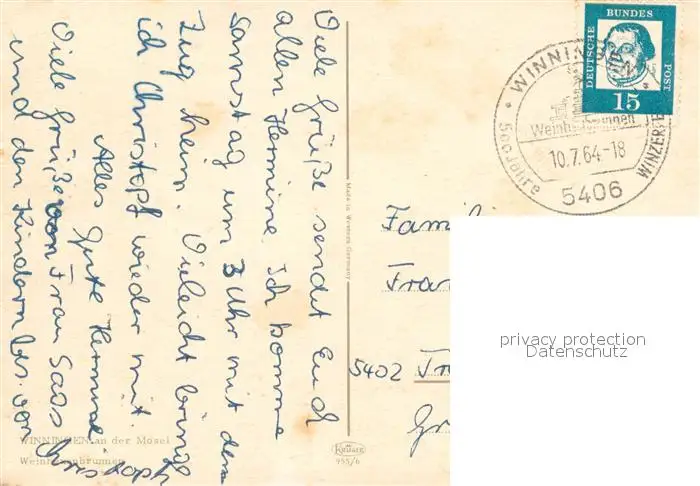 Viele Grüße sendet Euch
allen Hermine. Ich komme
Samstag um 3 Uhr mit dem
Zug heim. Vieleicht bringe
ich Christoph wieder mit.
Alles gute Hermine
Viele Grüße von Frau Saas
und den Kindern u. von Christoph
WINNINGEN an der Mosel
Weinhexenbrunnen
Made in Western Germany
Krüger
955/6
DEUTSCHE BUNDES POST
15
WINNINGEN
500 Jahre
Weinhexe
10.7.64-18
5406
WINZERFE
Famili
Fra
5402
privacy protection
Datenschutz